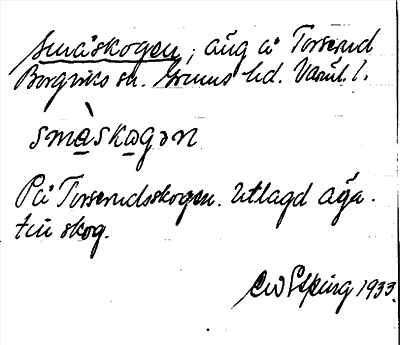 Småskogen, äng å Torserud
Borgviks sn. Grums hd. Värml. l.
småskogən
På Torserudsskogen. Utlagd äga.
till skog.
C W Elfving 1933.